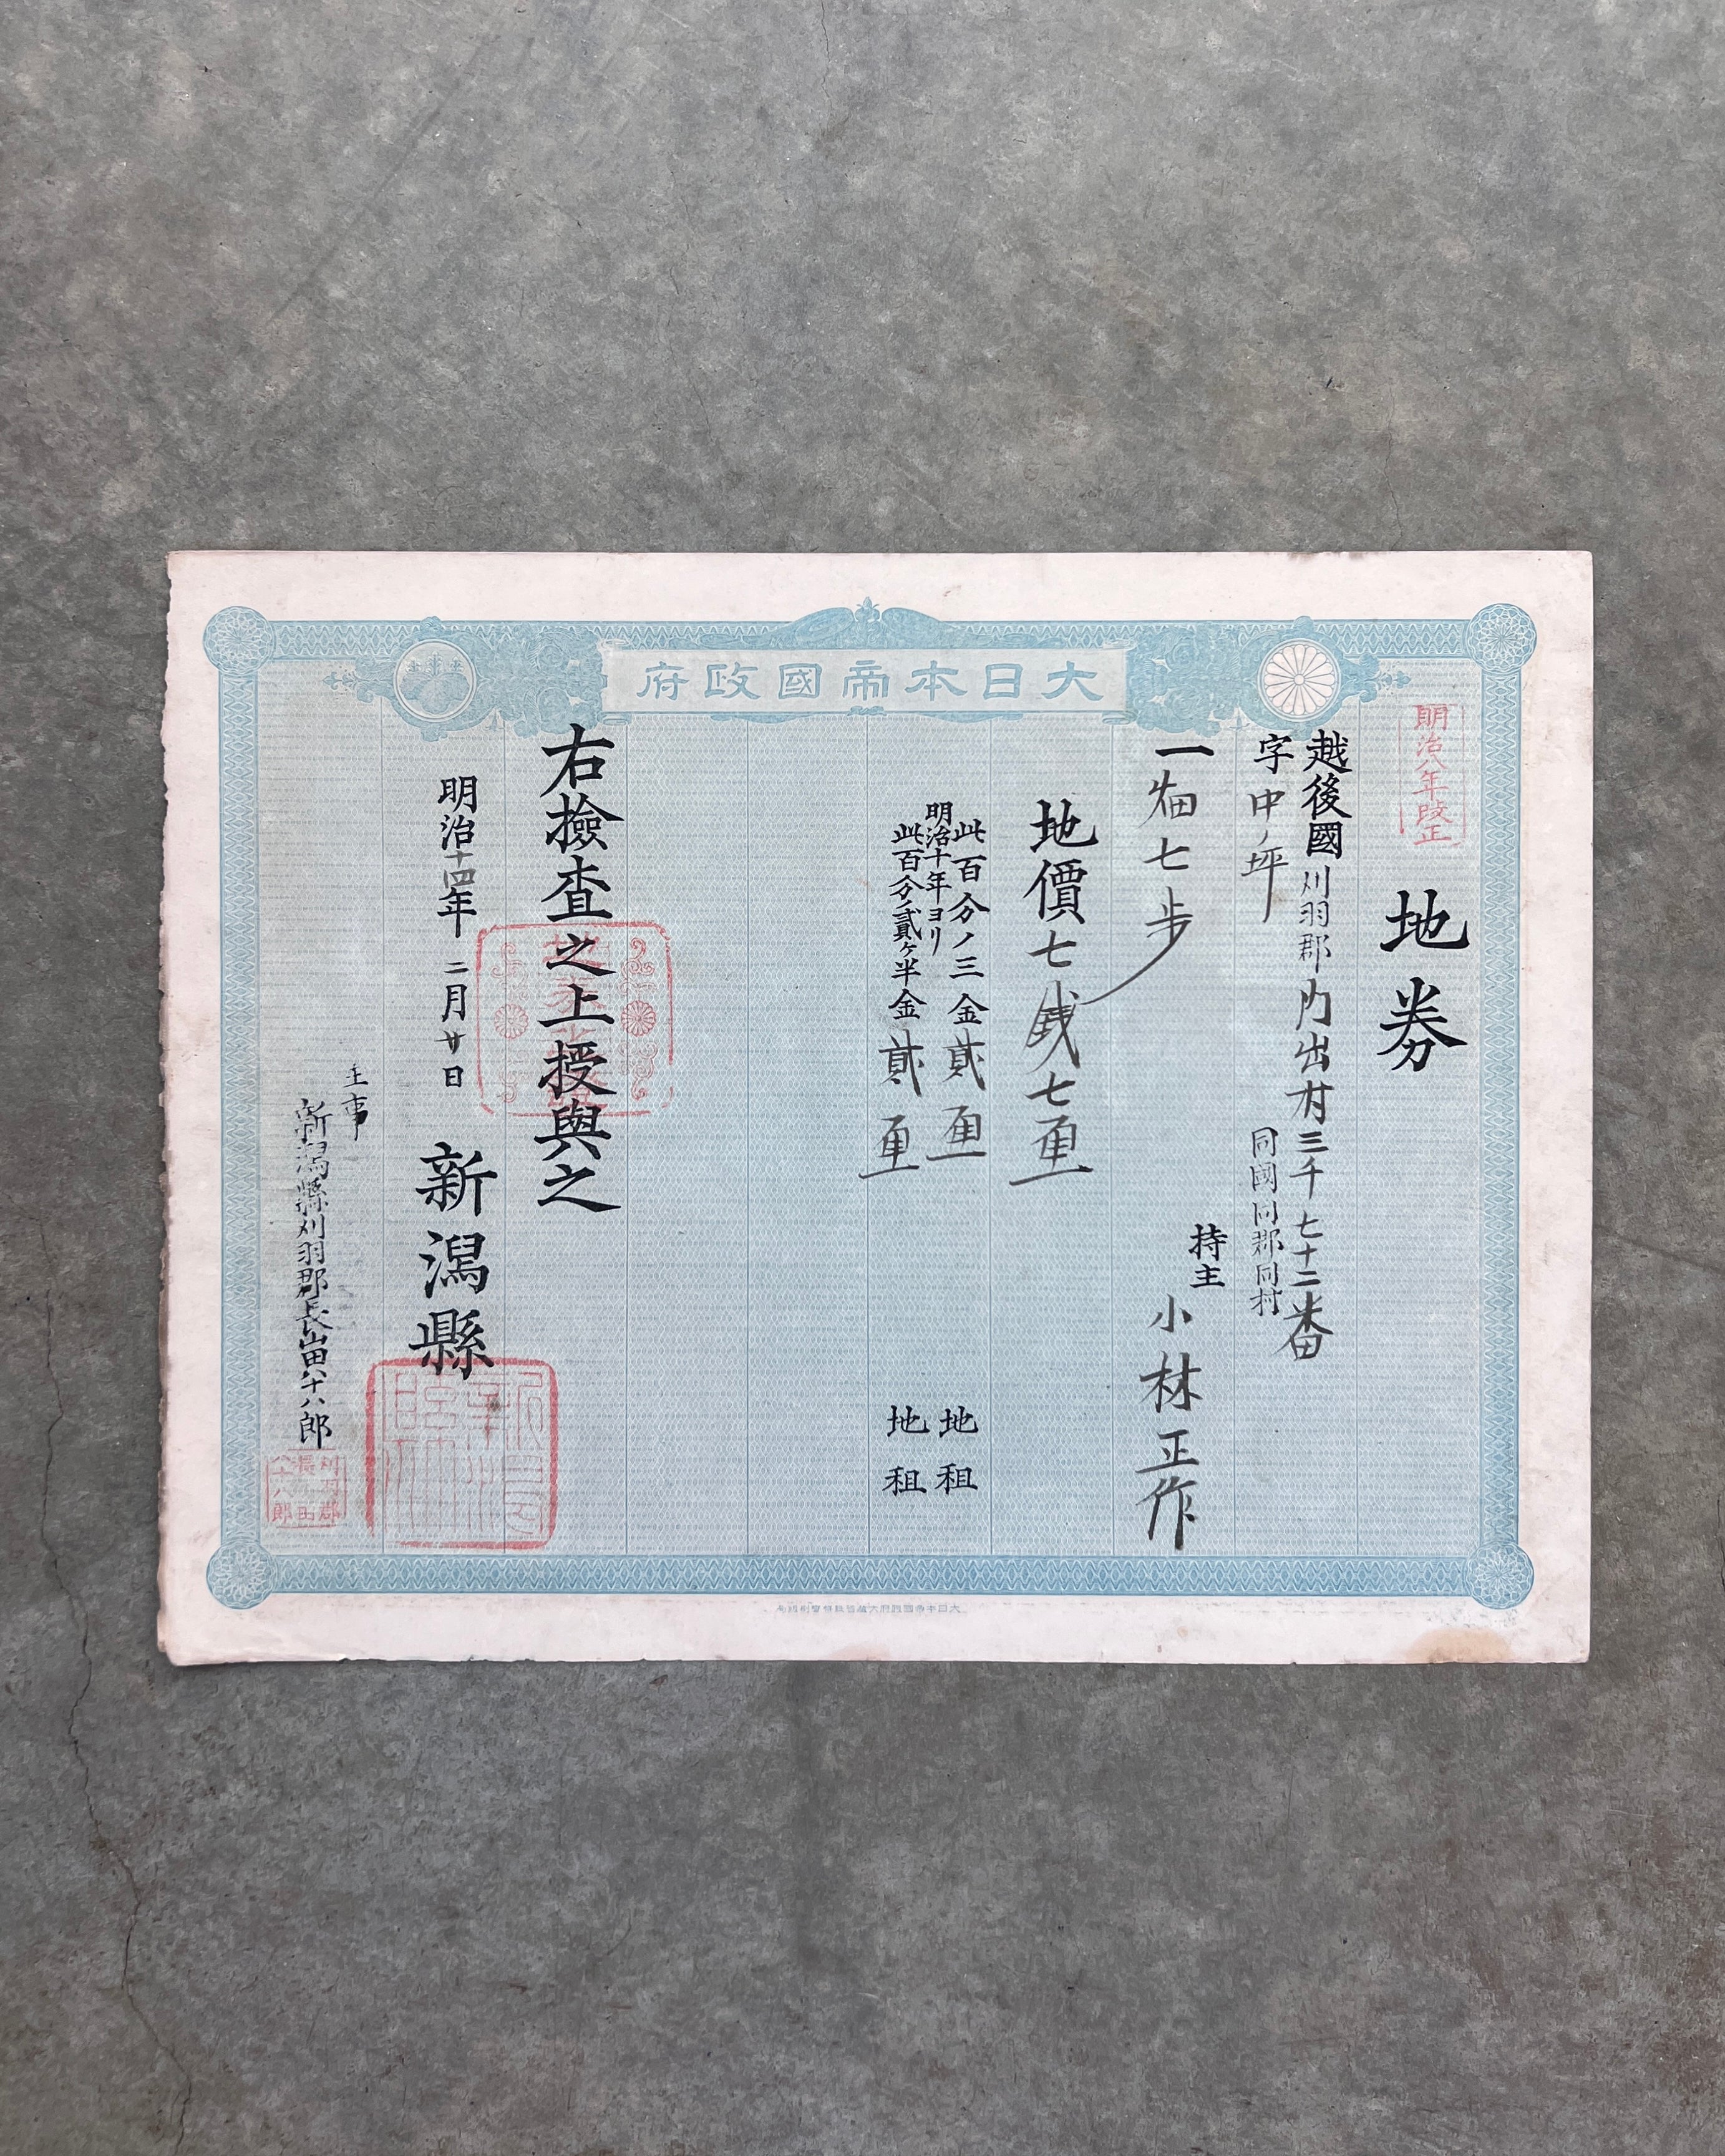 大日本帝國政府
明治八年改正
地券
越後國刈羽郡内出村三千七十二番
字中ノ坪
同國同郡同村
一畑七歩
持主 小林正作
地價七銭七厘
此百分ノ三金貳厘 地租
明治十年ヨリ
此百分ノ貳ヶ半金貳厘 地租
右撿査之上授與之
明治十四年二月廿日
新潟縣
主事
新潟縣刈羽郡長山田八十八郎